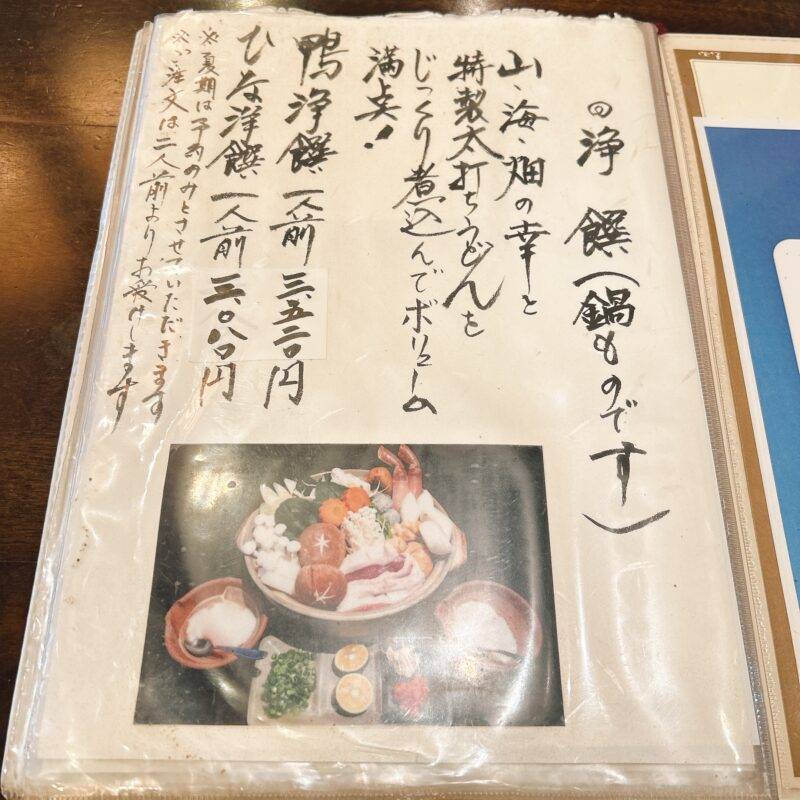 ◎浄饌(鍋ものです)
山、海、畑の幸と
特製太打ちうどんを
じっくり煮込んでボリューム
満点!
鴨浄饌 一人前 三、五二〇円
ひな浄饌 一人前 三、〇八〇円
※夏期は予約のみとさせていただきます
※ご注文は二人前よりお受けします